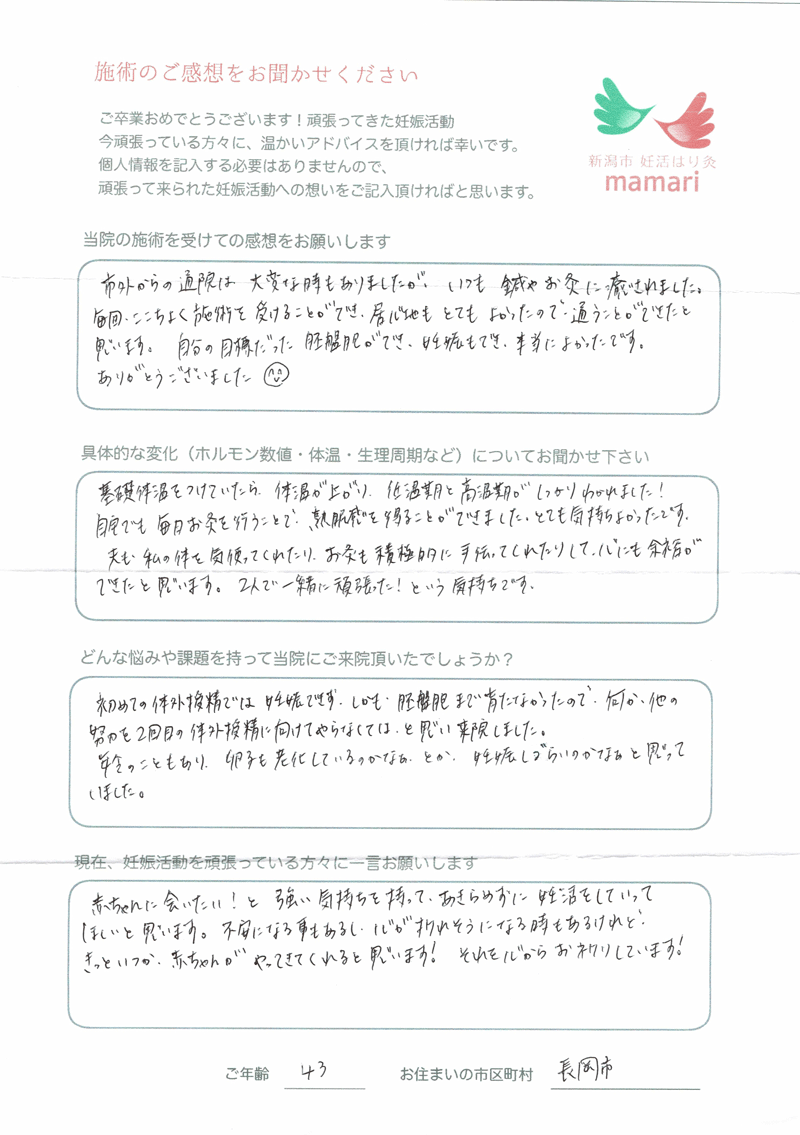 施術のご感想をお聞かせください
ご卒業おめでとうございます！頑張ってきた妊娠活動
今頑張っている方々に、温かいアドバイスを頂ければ幸いです。
個人情報を記入する必要はありませんので、
頑張って来られた妊娠活動への想いをご記入頂ければと思います。
新潟市 妊活はり灸
mamari
当院の施術を受けての感想をお願いします
市外からの通院は 大変な時もありましたが、いつも 鍼やお灸に癒されました。
毎回、ここちよく施術を受けることができ、居心地も とても よかったので、通うことができたと
思います。 自分の目標だった 胚盤胞ができ、妊娠もでき、本当によかったです。
ありがとうございました
具体的な変化（ホルモン数値・体温・生理周期など）についてお聞かせ下さい
基礎体温をつけていたら、体温が上がり、低温期と高温期が しっかりわかれました！
自宅でも 毎日お灸を行うことで、熟眠感を得ることができました。とても気持ちよかったです。
夫も 私の体を気使ってくれたり、お灸も積極的に手伝ってくれたりして、心にも余裕が
できたと思います。 2人で一緒に頑張った！という気持ちです。
どんな悩みや課題を持って当院にご来院頂いたでしょうか？
初めての体外授精では 妊娠できず、しかも、胚盤胞まで育たなかったので、何か、他の
努力を2回目の体外授精に向けてやらなくては、と思い来院しました。
年令のこともあり、卵子も老化しているのかなぁ、とか、妊娠しづらいのかなぁと思って
いました。
現在、妊娠活動を頑張っている方々に一言お願いします
赤ちゃんに会いたい！と 強い気持ちを持って、あきらめずに 妊活をしていって
ほしいと思います。不安になる事もあるし、心が折れそうになる時もあるけれど、
きっといつか、赤ちゃんが やってきてくれると思います！ それを心からお祈りしています！
ご年齢 43 お住まいの市区町村 長岡市